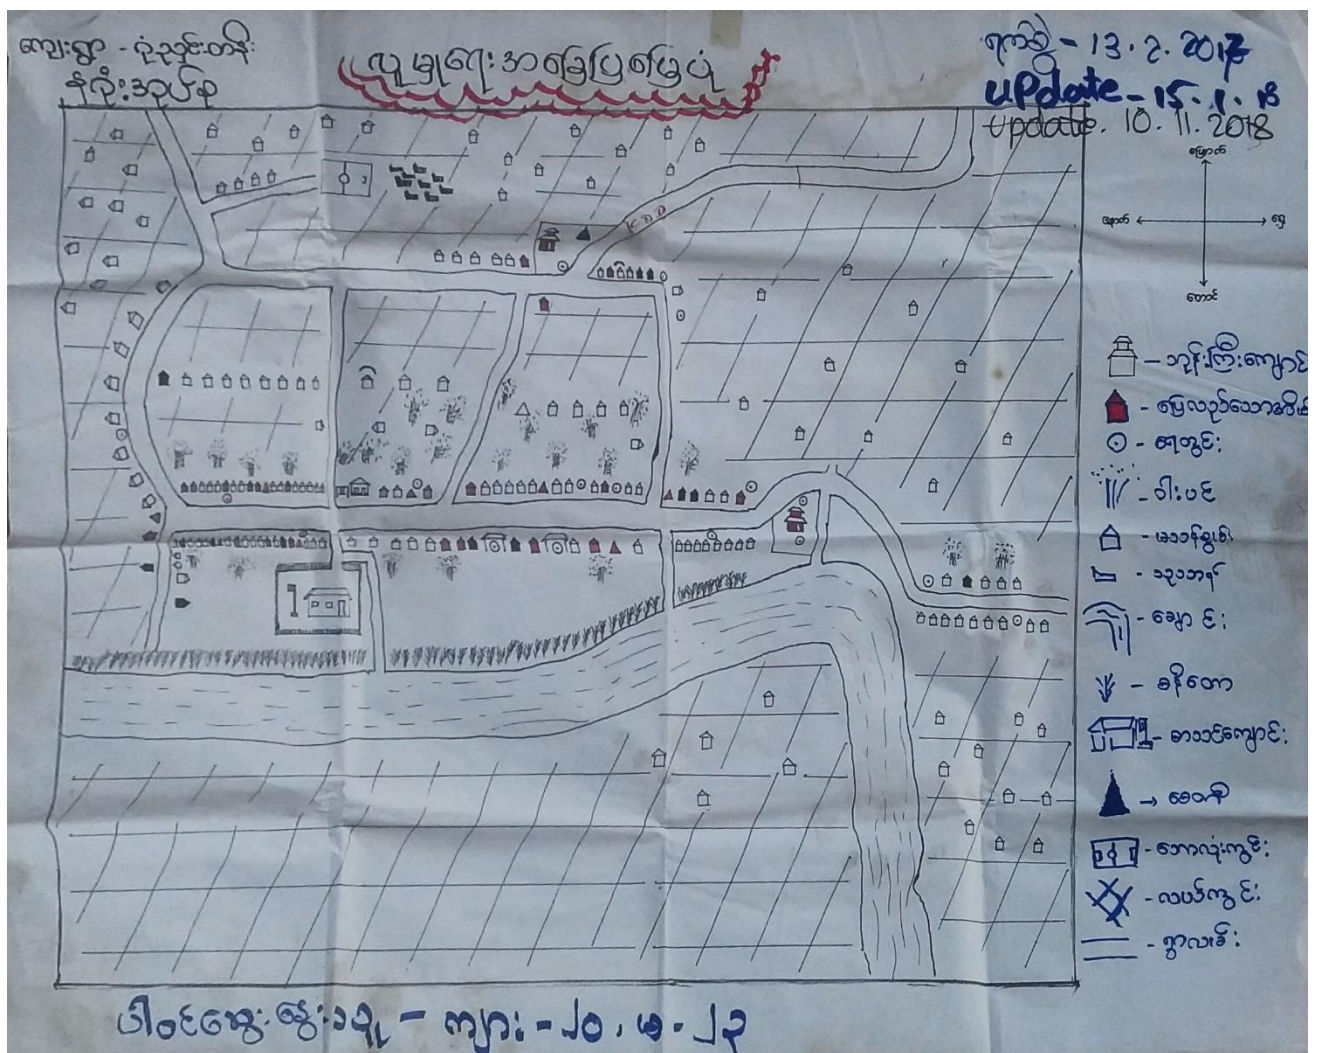 ကျေးရွာ - ဂုံညှင်းတန်း
နလုံးအုပ်စု
လူမှုရေးအခြေပြမြေပုံ
ရက်စွဲ - 13.2.2017
update - 15.1.18
update. 10.11.2018
မြောက်
အနောက်
အရှေ့
တောင်
KDD
- ဘုန်းကြီးကျောင်း
- ရေတွင်း
- ဝါးပင်
- သုဿာန်
- ချောင်း
- ဓနိတော
- စာသင်ကျောင်း
→ စေတီ
- ဘောလုံးကွင်း
- လယ်ကွင်း
- ရွာလမ်း
ပါဝင်ဆွေးနွေးသူ - ကျား - ၂၀, မ - ၂၃